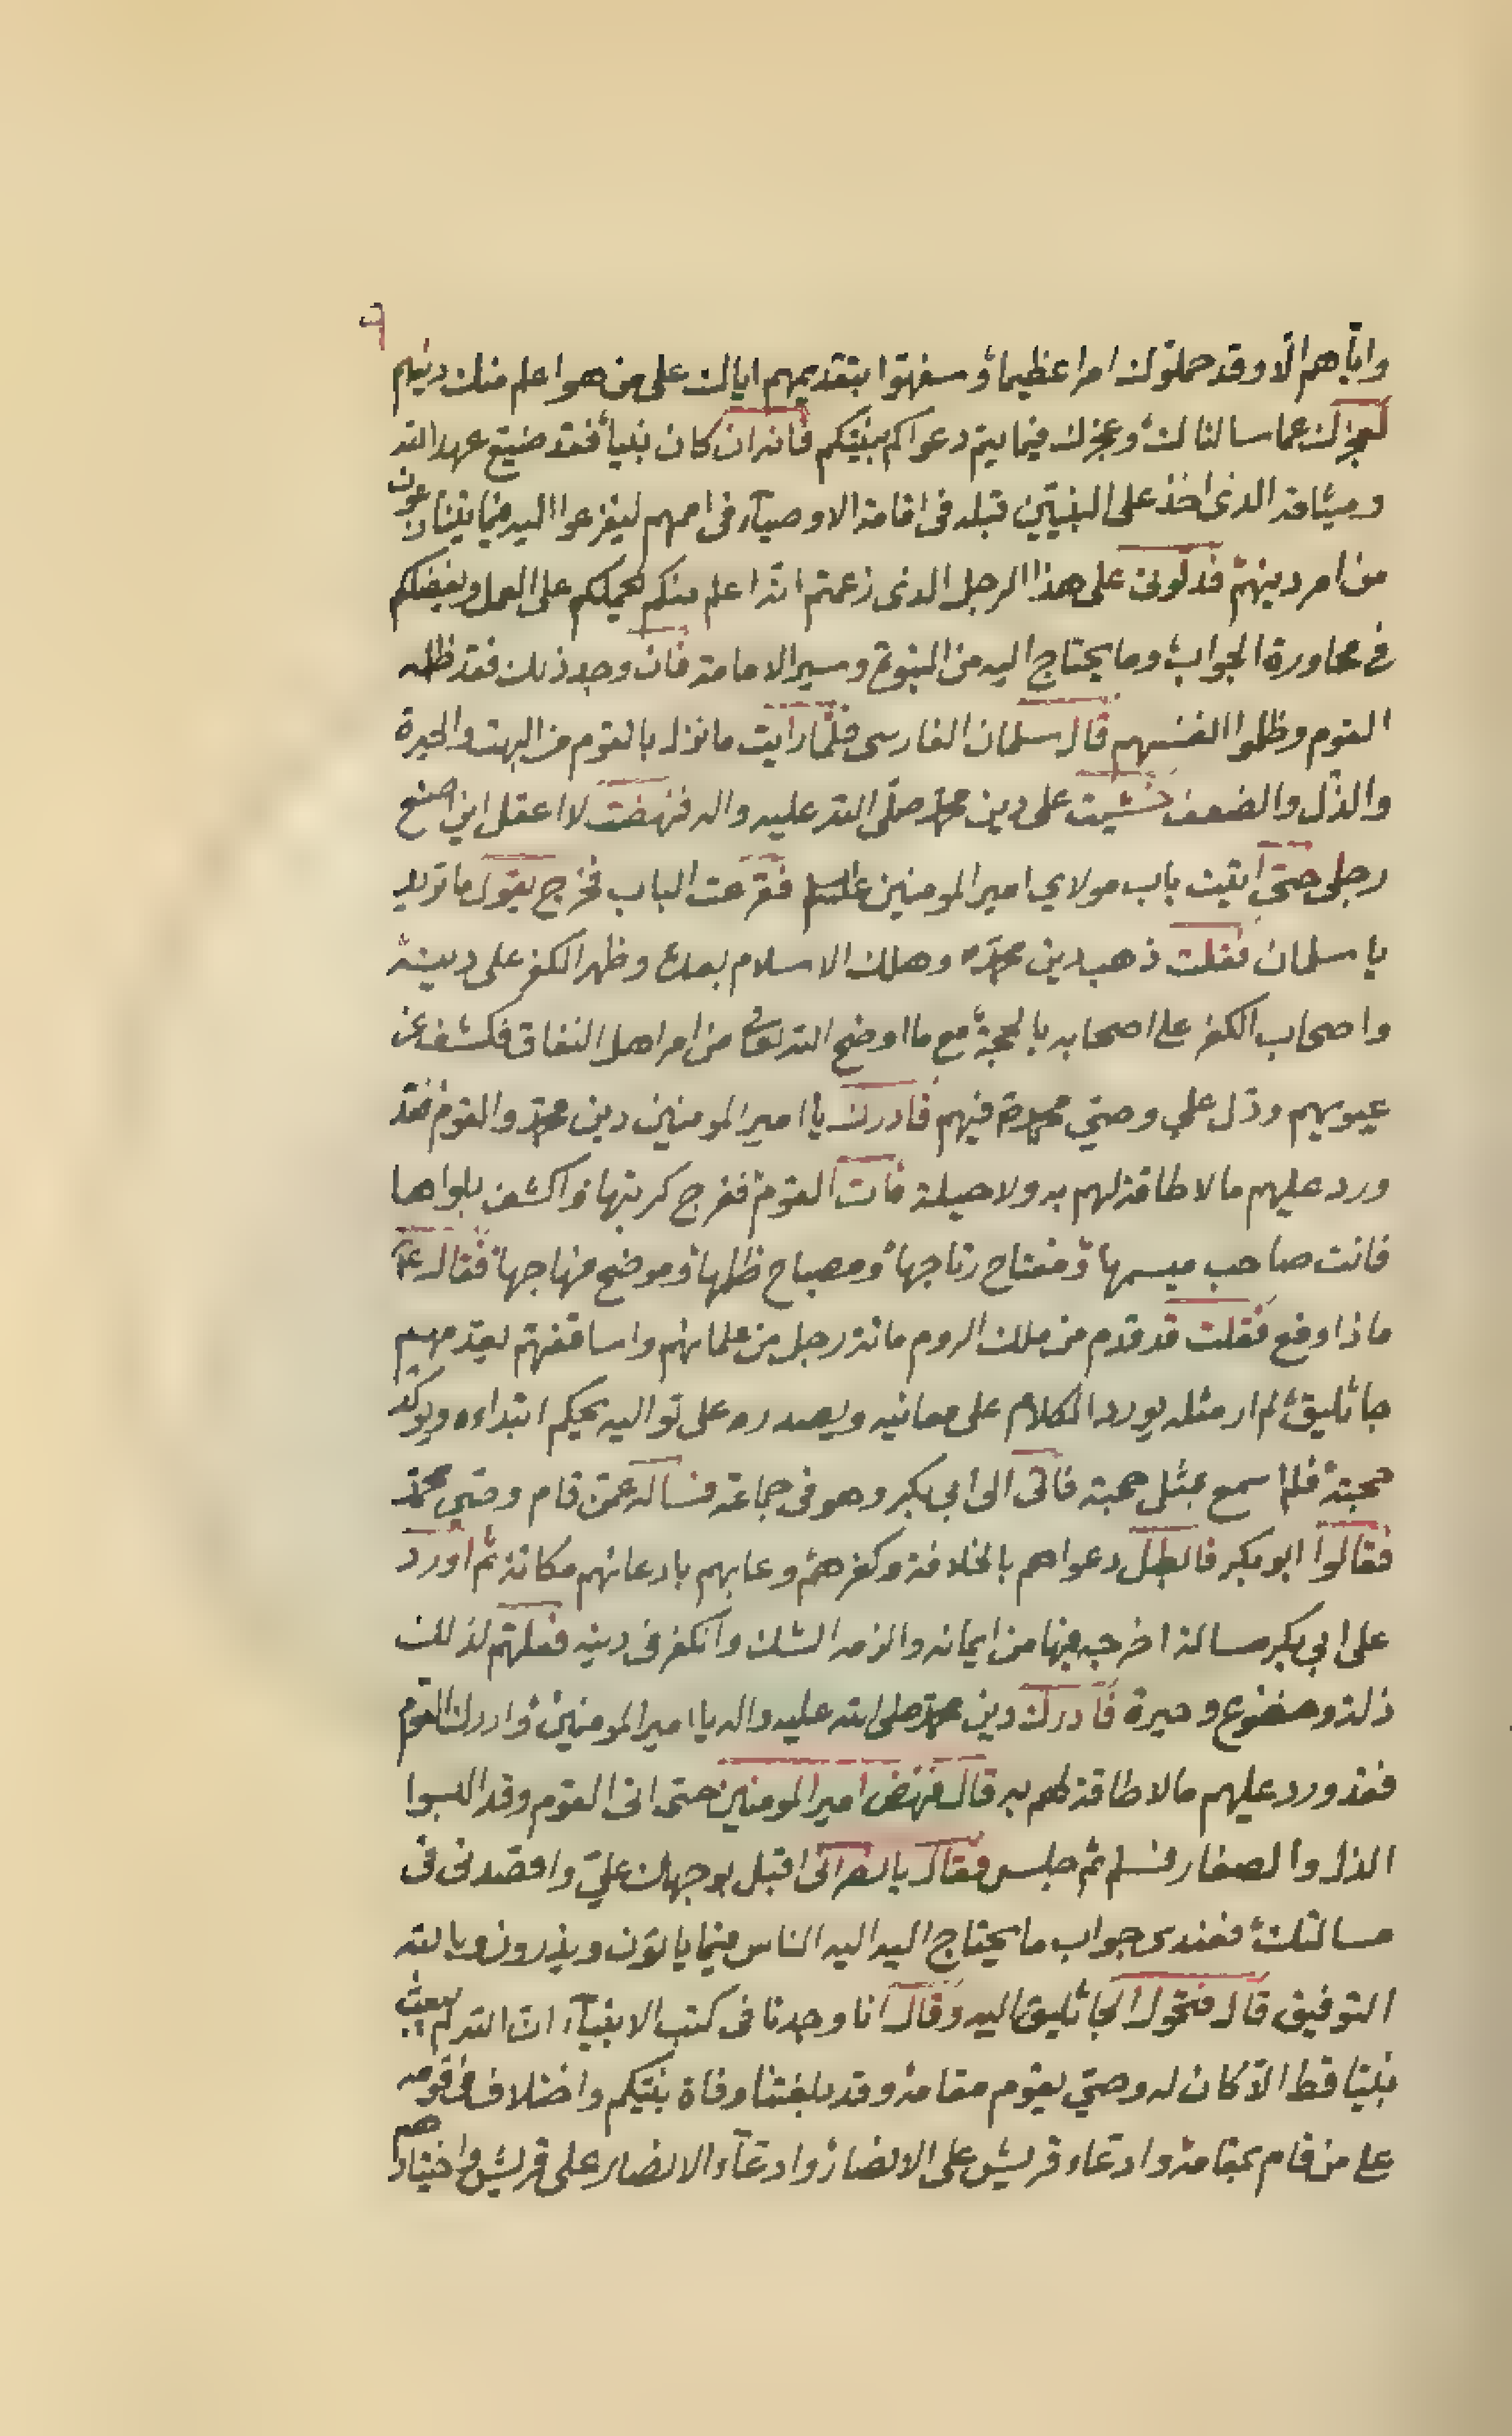 ٩
وايّاهم الّا وقد حملوك امرا عظيما وسفهوا بتقديمهم اياك على من هو اعلم منك دينهم
لعجزك عما سالنا لك وعجزك فيما يتم دعواكم بنبيّكم فانه ان كان نبيا فقد ضيّع عهد الله
وميثاقه الذى اخذ على النبيّين قبله فى اقامة الاوصيآء فى اممهم ليفزعوا اليه فيما يتنازعون
من امر دينهم فدلّونى على هذا الرجل الذى زعمتم انّه اعلم منكم
فى محاورة الجواب وما يحتاج اليه من النبوة وسير الامامة فان وجد ذلك فقد ظلم
القوم وظلموا انفسهم قال سلمان الفارسى فلمّا رايت ما نزل بالقوم من البهت والحيرة
والذّل والضعف خشيت على دين محمّد صلّى الله عليه واله فنهضت لا اعقل اين اضع
رجلى حتى اتيت باب مولاي امير المومنين عليه السلام فقرعت الباب فخرج يقول ما تريد
يا سلمان فقلت ذهب دين محمّد وهلك الاسلام بعده وظهر الكفر على دينه
واصحاب الكفر على اصحابه بالحجة مع ما اوضح الله تعالى من امر اهل النفاق فكشف عن
عيوبهم ودّل على وصيّ محمّد فيهم فادرك يا امير المومنين دين محمّد والقوم فقد
ورد عليهم ما لا طاقة لهم به ولا حيلة فات القوم ففرج كربتها واكشف بلواها
فانت صاحب ميسمها ومفتاح رتاجها ومصباح ظلمها وموضح منهاجها فقال ع
ماذا وقع فقلت قد قدم من ملك الروم مائة رجل من علمائهم واساقفتهم يقدمهم
جاثليق لم ار مثله يورد الكلام على معانيه ويصدره على تواليه يحكم ابتداءه ويوكد
حجته فلم اسمع بمثل حجبته فاتى الى ابي بكر وهو فى جماعة فساله عمّن قام وصّى محمّد
فقالوا ابو بكر فابطل دعواهم بالخلافة وكفرهم وعابهم بادعائهم مكانه ثم اورد
على ابي بكر مسالة اخرجه فيها من ايمانه والزمه الشك والكفر فى دينه فعلتهم لذلك
ذلة وخضوع وحيرة فادرك دين محمّد صلى الله عليه واله يا امير المومنين وادرك القوم
فقد ورد عليهم ما لا طاقة لهم به قال فنهض امير المومنين حتى اتى القوم وقد البسوا
الذل والصغار فسلم ثم جلس فقال يا نصرانى اقبل بوجهك عليّ واقصدنى فى
مسالتك فعندى جواب ما يحتاج اليه اليه الناس فيما ياتون ويذرون وبالله
التوفيق قال فتحول الجاثليق اليه وقال انا وجدنا فى كتب الانبيآء ان الله لم يبعث
نبيّا قط الّا كان له وصيّ يقوم مقامه وقد بلغتنا وفاة نبيّكم واختلاف قومه
على من قام بمقامه وادعاء قريش على الانصار وادعآء الانصار على قريش واختيارهم